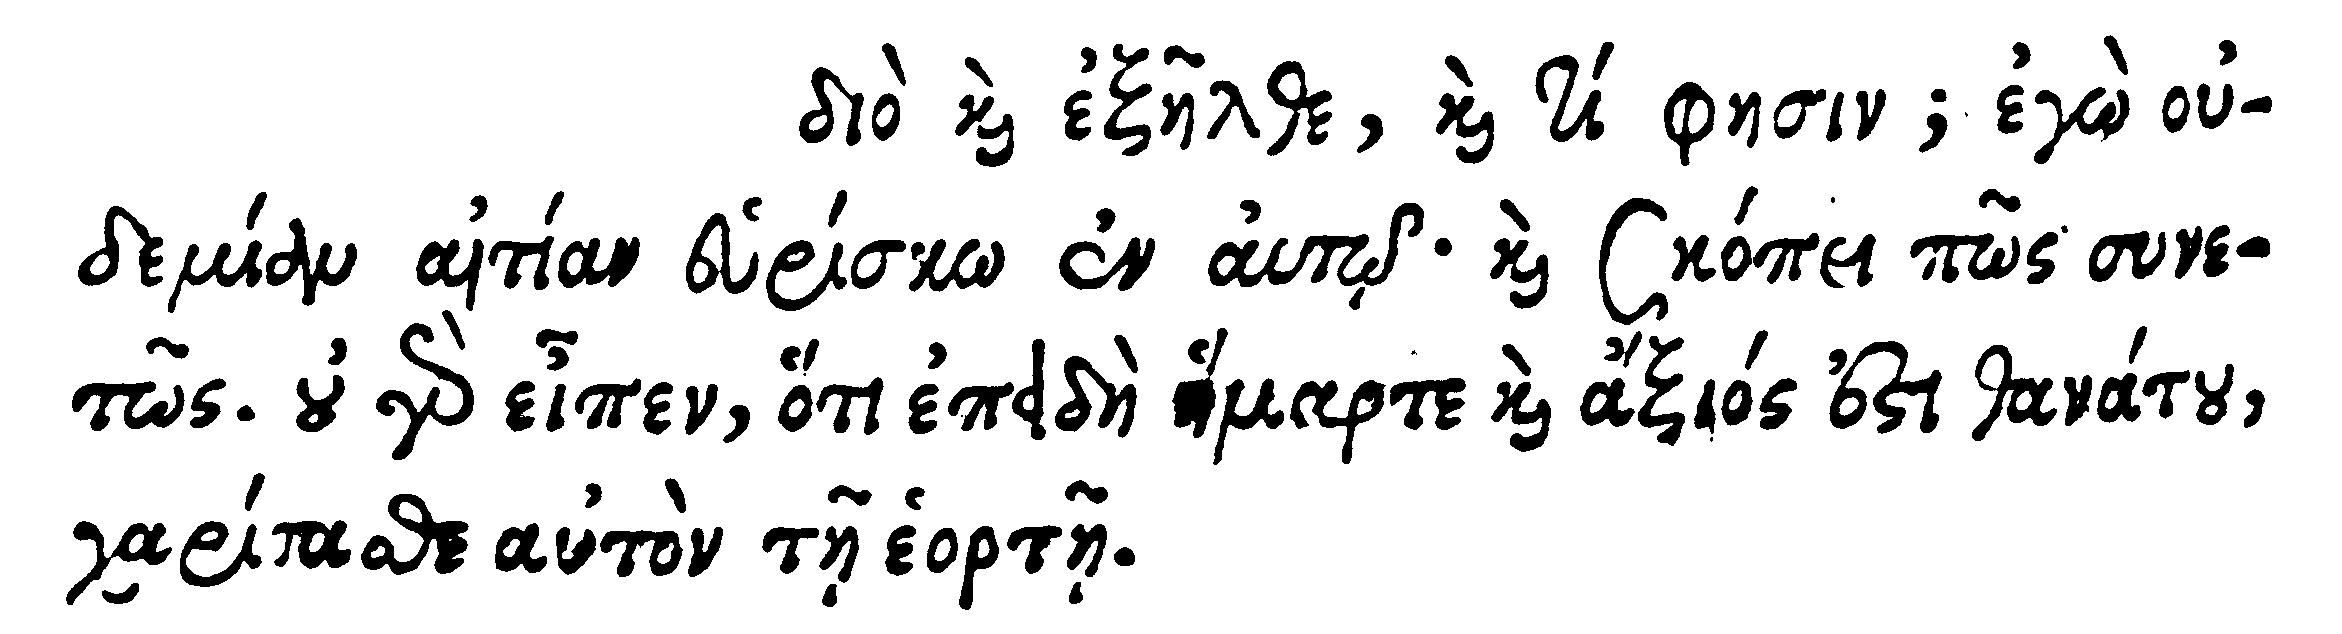 διὸ καὶ ἐξῆλθε, καὶ τί φησιν; ἐγὼ οὐ-
δεμίαν αἰτίαν εὑρίσκω ἐν αὐτῷ· καὶ σκόπει πῶς συνε-
τῶς. οὐ γὰρ εἶπεν, ὅτι ἐπειδὴ ἥμαρτε καὶ ἄξιός ἐστι θανάτου,
χαρίσασθε αὐτὸν τῇ ἑορτῇ.